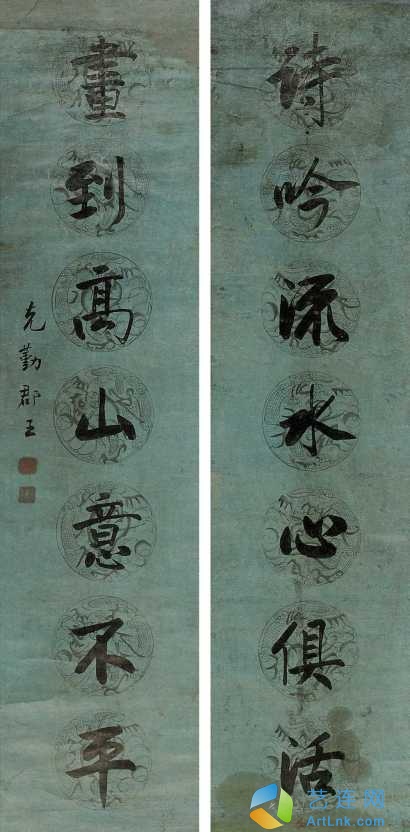 詩吟流水心俱活
畫到高山意不平
克勤郡王
艺连网
ArtLnk.com